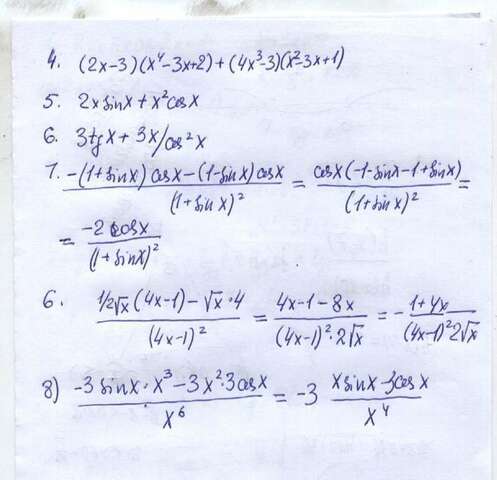 4. (2x-3)(x⁴-3x+2)+(4x³-3)(x²-3x+1)
5. 2x sinx + x² cosx
6. 3tgx + 3x/cos²x
7. (-(1+sinx) cosx - (1-sinx) cosx)/(1+sinx)² = cosx(-1-sinx-1+sinx)/(1+sinx)² =
= -2 cosx/(1+sinx)²
6. (1/2√x (4x-1) - √x·4)/(4x-1)² = (4x-1-8x)/((4x-1)²·2√x) = - (1+4x)/((4x-1)²2√x)
8) (-3 sinx·x³ - 3x²·3cosx)/x⁶ = -3 (x sinx - 3cosx)/x⁴